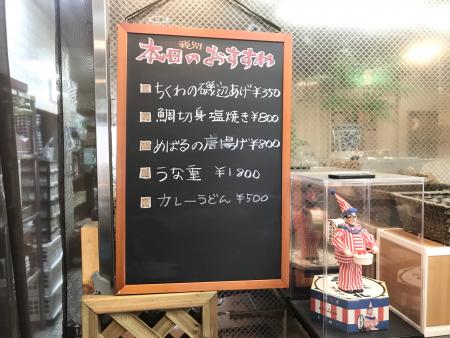 税別
本日のおすすめ
ちくわの磯辺あげ¥350
鯛切身塩焼き¥800
めばるの唐揚げ¥800
うな重 ¥1.800
カレーうどん ¥500